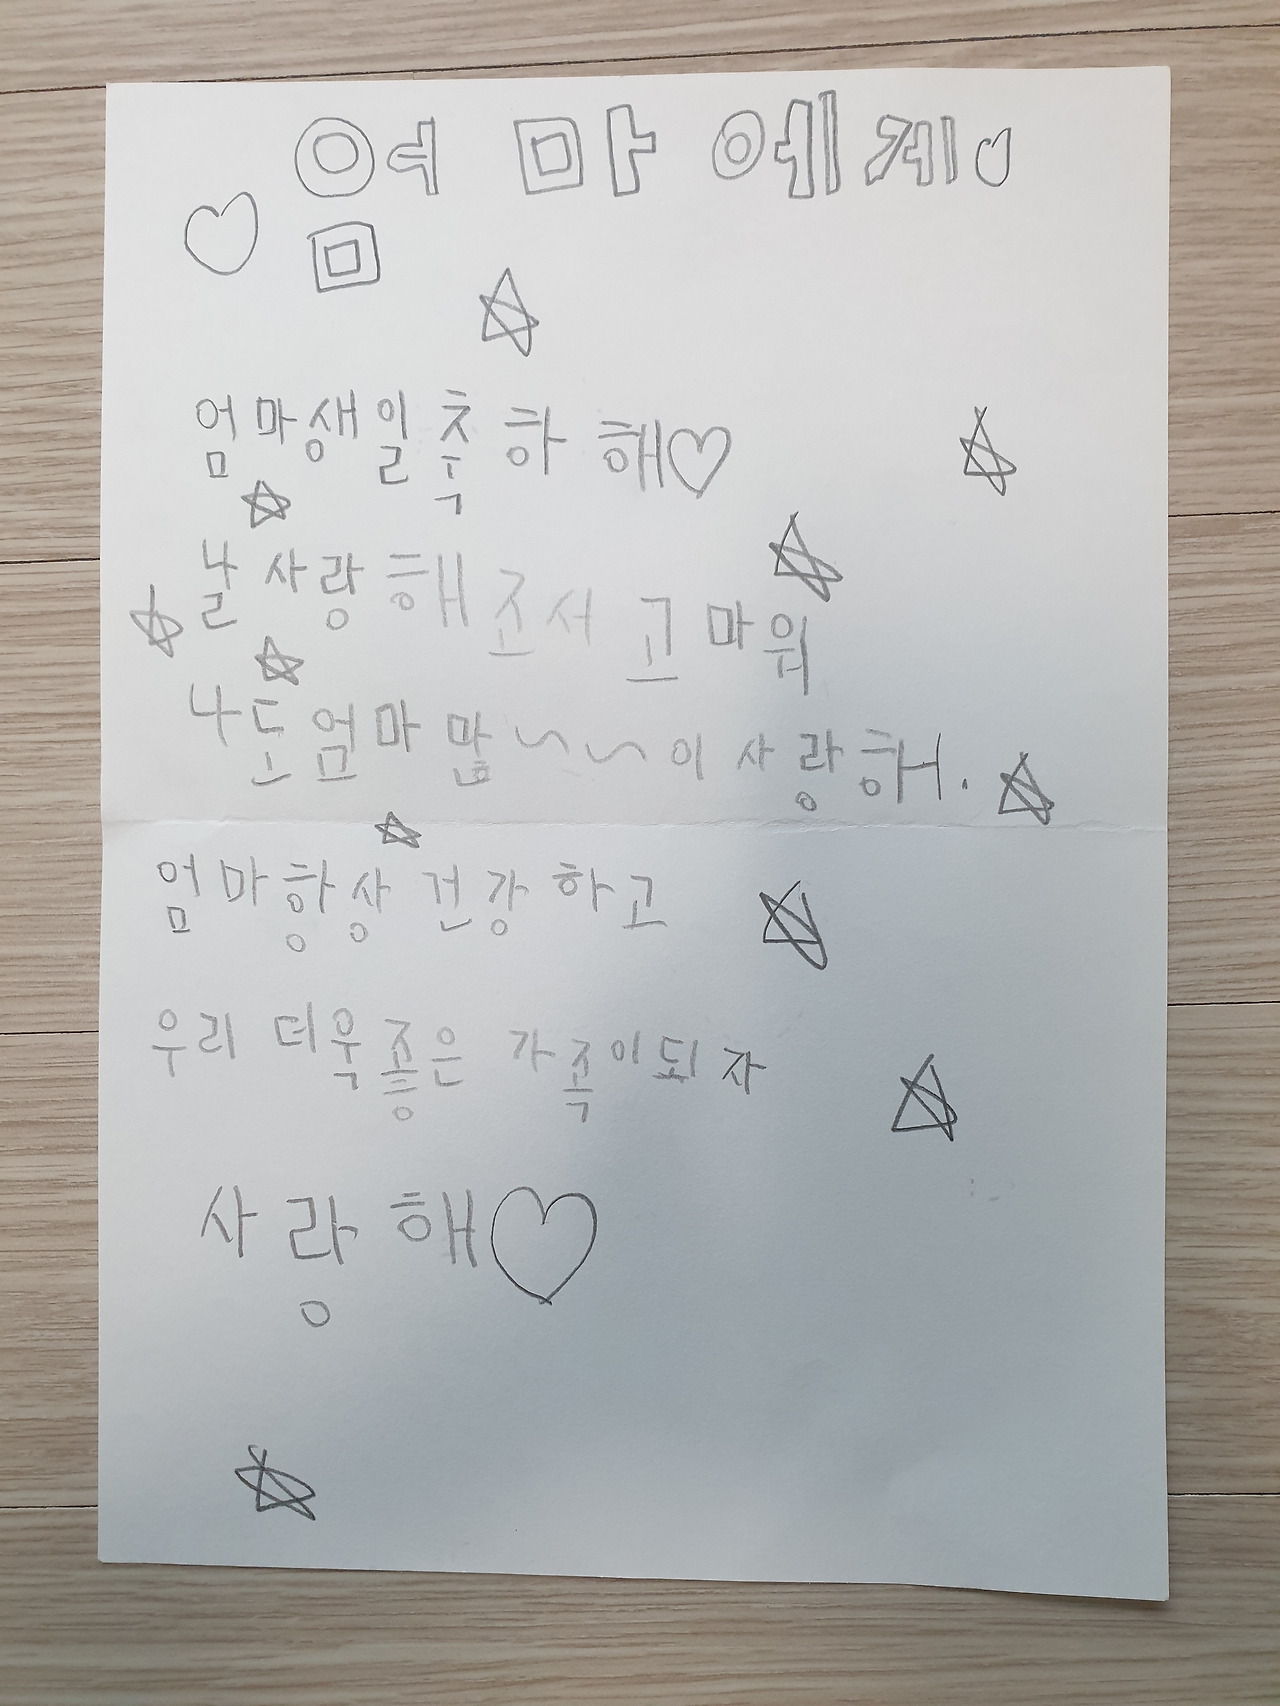 엄마에게
엄마생일축하해♡
날사랑해조서고마워
나도엄마맘~~이사랑해.
엄마항상건강하고
우리더욱좋은가족이되자
사랑해♡